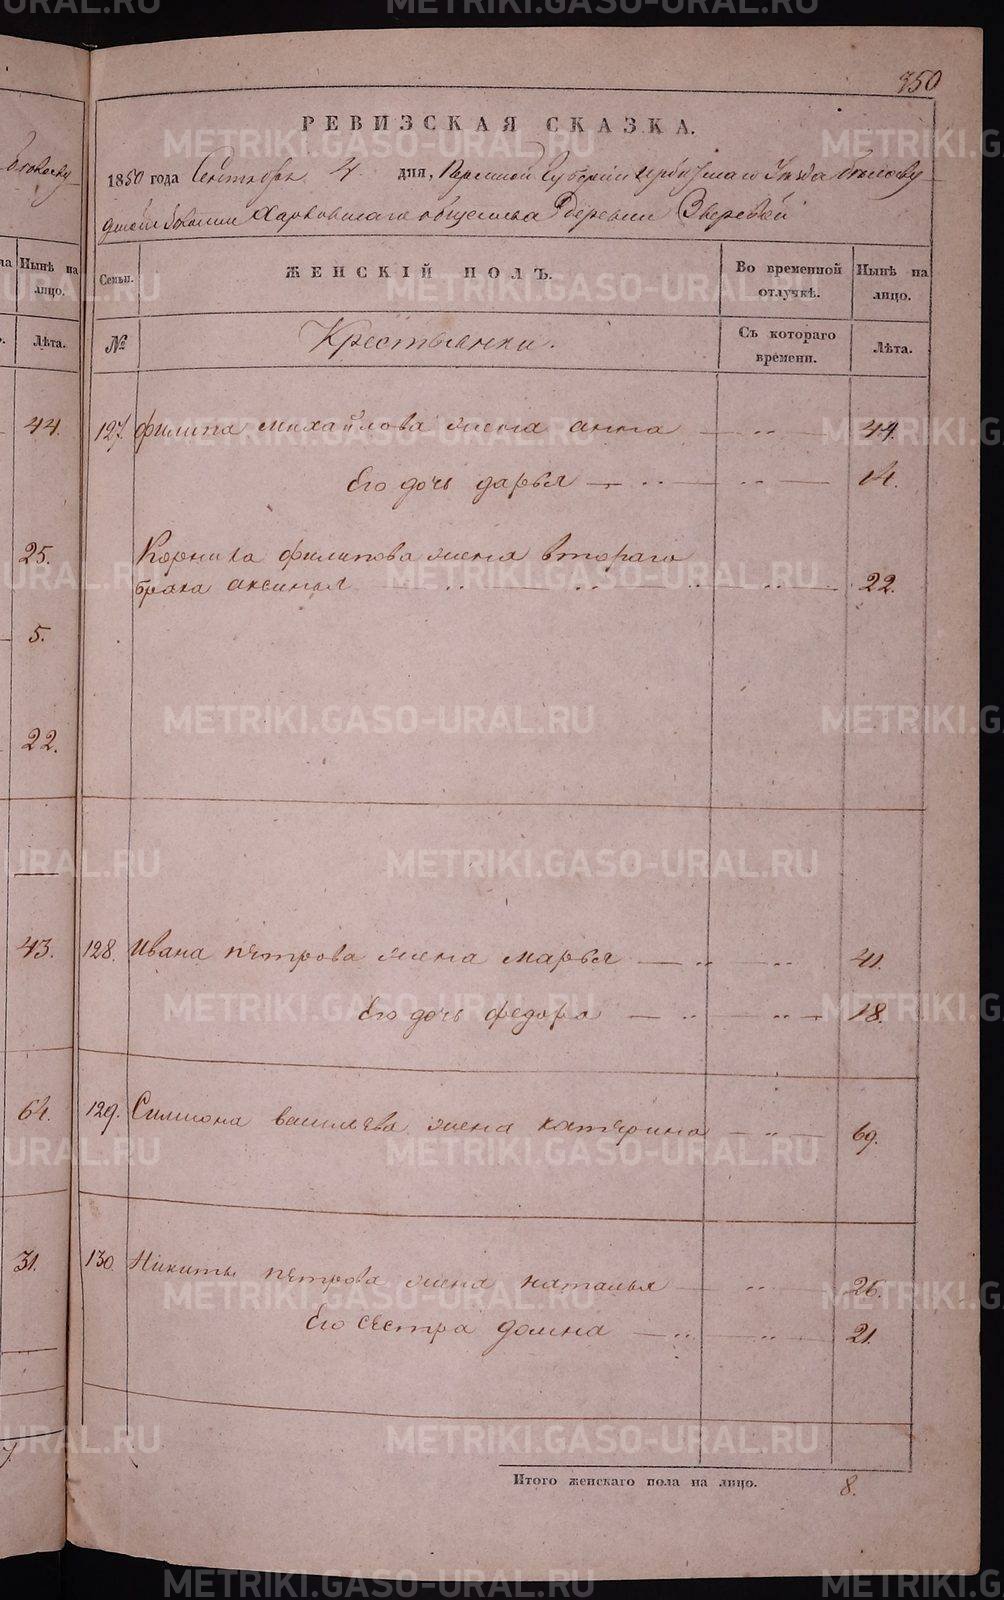 350
РЕВИЗСКАЯ СКАЗКА.
1850 года Сентября 4 дня, Пермской Губернии Ирбитскаго Уезда
Харловскаго общества деревни Зверевой
Семьи. ЖЕНСКІЙ ПОЛЪ. Во временной отлучкѣ. Нынѣ на лицо.
№ Крестьянки. Съ котораго времени. Лѣта.
127. филипа михайлова жена анна 44.
Его дочь дарья 14.
Корнила филипова жена втораго
брака аксинья 22.
128. Ивана петрова жена марья 41.
Его дочь федора 18.
129. Симиона васильева жена катерина 69.
130. Никиты петрова жена наталья 26.
Его сестра домна 21.
Итого женскаго пола на лицо. 8.
Нынѣ на лицо.
Лѣта.
44.
25.
5.
22.
43.
64.
31.
METRIKI.GASO-URAL.RU